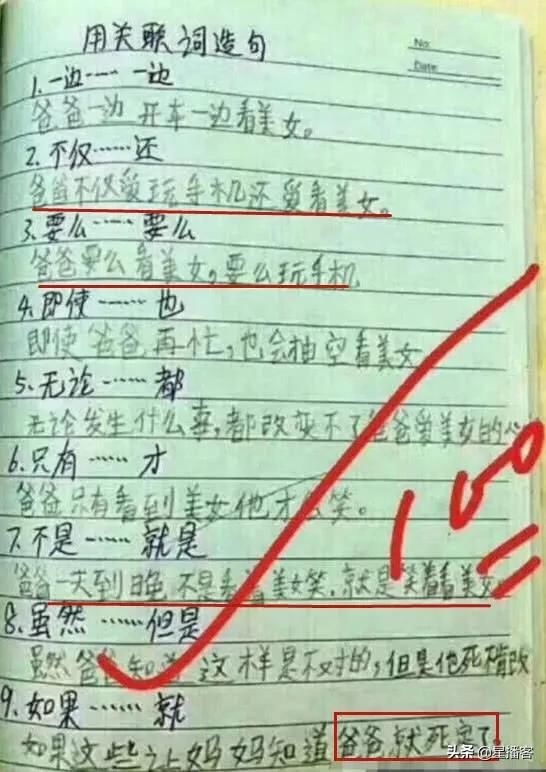 用关联词造句
No:
Date:
1.一边……一边
爸爸一边开车一边看美女。
2.不仅……还
爸爸不仅爱玩手机还爱看美女。
3.要么……要么
爸爸要么看美女,要么玩手机
4.即使……也
即使爸爸再忙,也会抽空看美女
5.无论……都
无论发生什么事,都改变不了爸爸爱美女的心
6.只有……才
爸爸只有看到美女他才会笑。
7.不是……就是
爸爸一天到晚不是看着美女笑,就是笑着看美女。
8.虽然……但是
虽然爸爸知道这样是不对的,但是他死不悔改
9.如果……就
如果这些让妈妈知道爸爸就死定了
100
头条 @星播客